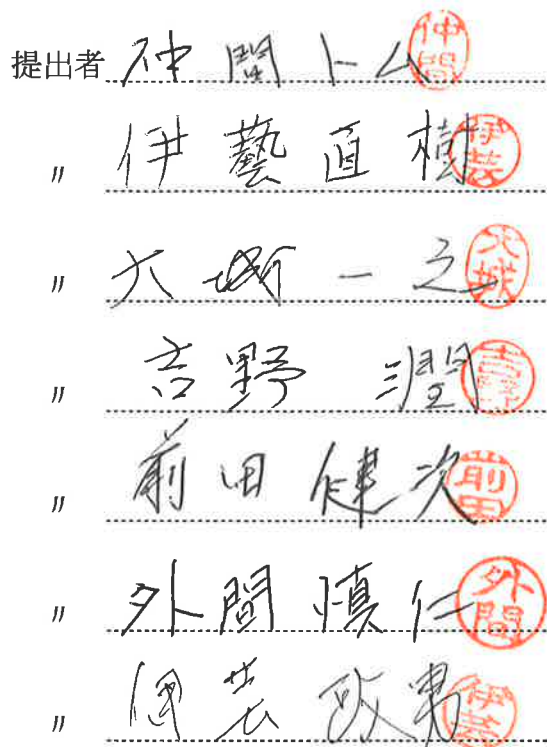 提出者 仲間トム 仲間
〃 伊藝直樹 伊芸
〃 大城一之 大城
〃 吉野潤 吉野
〃 前田健次 前田
〃 外間慎仁 外間
〃 伊芸政男 伊芸